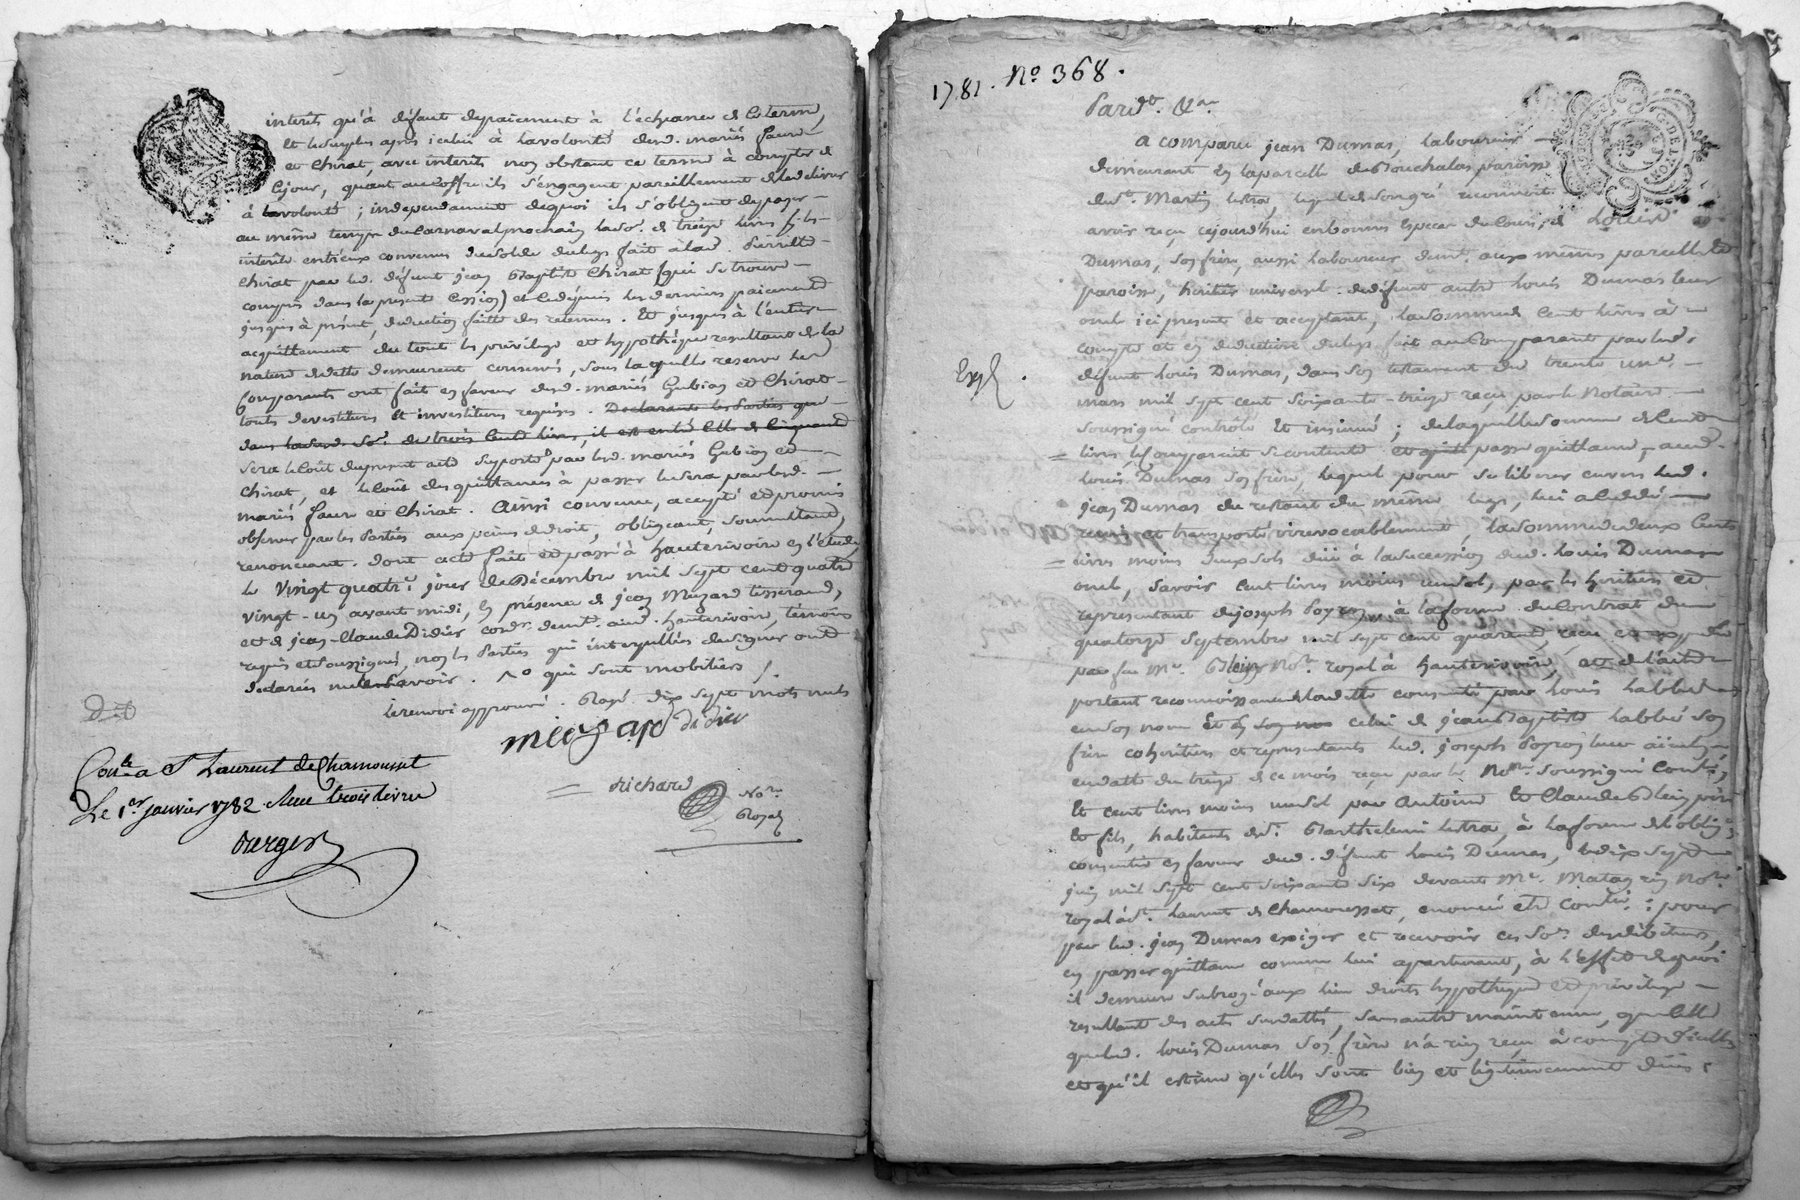 interêts qu'à défaut de paiement à l'échéance de ce terme,
et lesquels après icelui à la volonté desd. mariés faure
et Chirat, avec interêts non obstant ce terme à compter de
cejour, quant au coffre ils s'engagent pareillement de le délivrer
à la volonté ; independament de quoi ils s'obligent de payer
au même temps du Carnaval prochain la so.e de treize livres
interêts entr'eux convenus du solde du legs fait à lad. Pierrette
Chirat par led. défunt jean Baptiste Chirat (qui se trouve
compris dans la presente Cession) et les depuis les derniers paiements
jusques à présent, deduction faitte des retenues. Et jusques à l'entier
acquittement du tout les privilege et hypothéque resultant de la
nature de dette demeurent conservés, sous laquelle reserve les
Comparants ont fait en faveur desd. mariés Gubian et Chirat
touts devestitures et investitures requises. Declarants les Parties que
dans lasusd. so.e de trois Cents livres, il est entré celle de Cinquante
sera le coût du present acte supporté par lesd. mariés Gubian et
Chirat, et le coût des quittances à passer le sera par lesd.
mariés faure et Chirat. Ainsi convenu, accepté et promis
observer par les Parties aux peines de droit, obligeant, soumettant,
renonceant. dont acte fait et passé à hauterivoire en l'étude
le vingt quatr.e jour de Décembre mil sept cent quatre
vingt-un avant midi, en présence de jean Mezard tisserand,
et de jean-Claude Didier cord.r demt. aud. hauterivoire, témoins
requis et soussignés, non les Parties qui interpellées de signer ont
declarées ne le savoir. qui sont mobiliers /.
le renvoi approuvé. Rayé dix sept mots nuls
mezard didier
Richard
No.re
Royal
Con.lé a St Laurent de Chamousset
Le 1.er janvier 1782. Reçu trois livres
Verger
1781. No 368.
Pard.t &a.
A comparu jean Dumas, laboureur
demeurant en la parcelle de Bouchalas paroisse
de St. Martin Lestra, lequel de son gré reconnoit
avoir reçu cejourd'hui en bonnes especes du cours, de Louis
Dumas, son frère, aussi laboureur demt. aux mêmes parcelle et
paroisse, héritier universel de defunt autre Louis Dumas leur
oncle ici present et acceptant, la somme de Cent livres à
compte et en deduction du legs fait au Comparant par led.
défunt Louis Dumas, dans son testament du trente un.e
mars mil sept cent soixante-treize reçu par le Notaire
soussigné contrôlé et insinué ; de laquelle somme de Cent
livres, le Comparant se contente et quitte passe quittance aud.
Louis Dumas son frère, lequel pour se liberer envers led.
jean Dumas du restant du même legs, lui a cedé
remis et transporté irrevocablement, la somme de deux Cents
livres moins deux sols düe à la succession dud. Louis Dumas
oncle, savoir cent livres moins un sol, par les heritiers et
representant de joseph Poyron, à la forme du Contrat du
quatorze Septembre mil sept cent quarante reçu
par feu Me. Blein No.re royal à hauterivoire, et de l'acte
portant reconnoissance de lad. dette consenti par Louis Labbé
en son nom et en son nom celui de jean Baptiste Labbé son
frère cohéritiers et representants led. joseph Poyron leur aïeul
en datte du treize de ce mois reçu par le No.re soussigné Cont.lé,
Et cent livres moins un sol par Antoine et Claude Blein père
et fils, habitants de St. Barthelemi Lestra, à la forme de l'oblig.on
consentie en faveur dud. défunt Louis Dumas, le dix sept
juin mil sept cent soixante six devant Me. Matagrin No.re
royal à St. Laurent de Chamousset, enoncée être Contr.lée ; pour
par led. jean Dumas exiger et recevoir ces so.es des debiteurs,
en passer quittance comme lui apartenant, à l'effet de quoi
il demeure subrogé aux lieu droits hypothéque et privilege
resultant des actes susdattés, sans autre maintenue, que celle
que led. Louis Dumas son frère n'a rien reçu à compte d'icelles
et qu'il estime qu'elles sont bien et legitimement düés ;